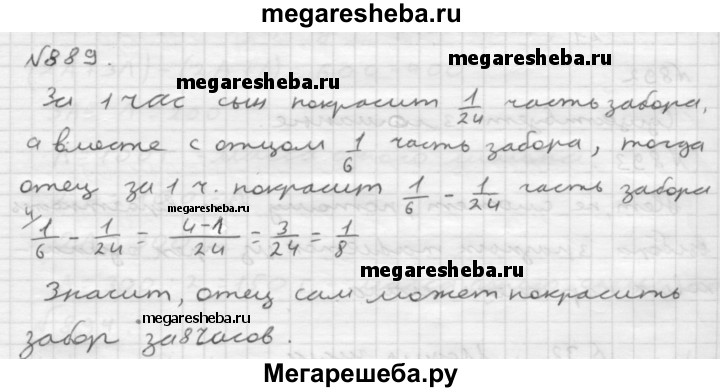 megaresheba.ru
№889.
megaresheba.ru
megaresheba.ru
За 1 час сын покрасит 1/24 часть забора,
а вместе с отцом 1/6 часть забора, тогда
отец за 1 ч. покрасит 1/6 - 1/24 часть забора
megare-sheba.ru
4/ 1/6 - 1/24 = 4-1/24 = 3/24 = 1/8
megaresheba.ru
Значит, отец сам может покрасить
megaresheba.ru
забор за 8 часов.
Мегарешеба.ру